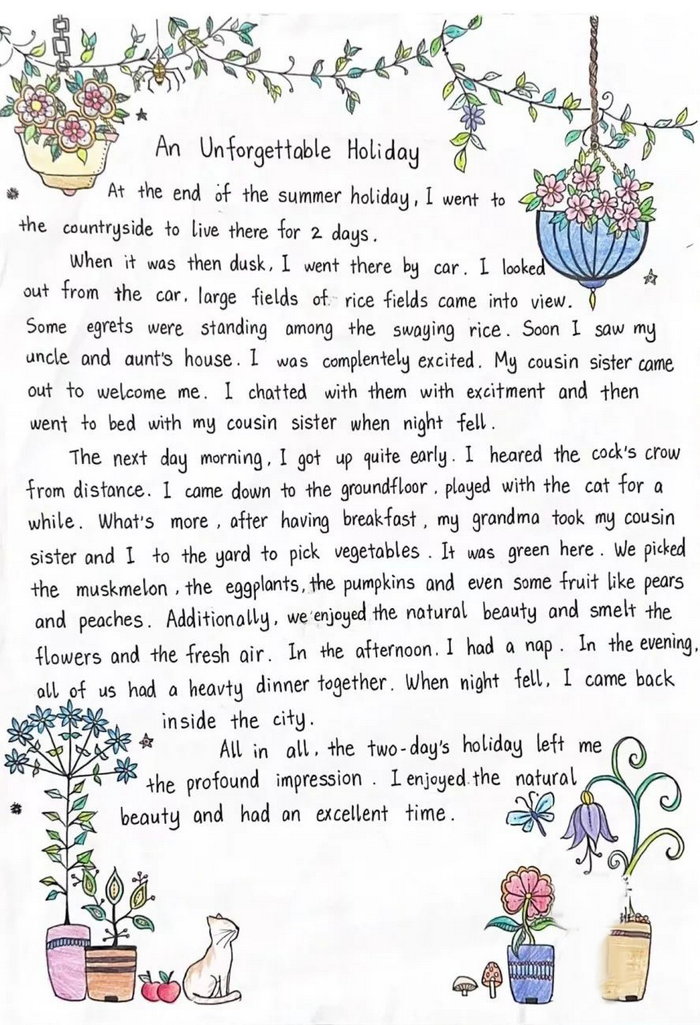 An Unforgettable Holiday
At the end of the summer holiday, I went to
the countryside to live there for 2 days.
When it was then dusk, I went there by car. I looked
out from the car, large fields of rice fields came into view.
Some egrets were standing among the swaying rice. Soon I saw my
uncle and aunt's house. I was complentely excited. My cousin sister came
out to welcome me. I chatted with them with excitment and then
went to bed with my cousin sister when night fell.
The next day morning, I got up quite early. I heared the cock's crow
from distance. I came down to the groundfloor, played with the cat for a
while. What's more, after having breakfast, my grandma took my cousin
sister and I to the yard to pick vegetables. It was green here. We picked
the muskmelon, the eggplants, the pumpkins and even some fruit like pears
and peaches. Additionally, we enjoyed the natural beauty and smelt the
flowers and the fresh air. In the afternoon. I had a nap. In the evening,
all of us had a heavty dinner together. When night fell, I came back
inside the city.
All in all, the two-day's holiday left me
the profound impression. I enjoyed the natural
beauty and had an excellent time.